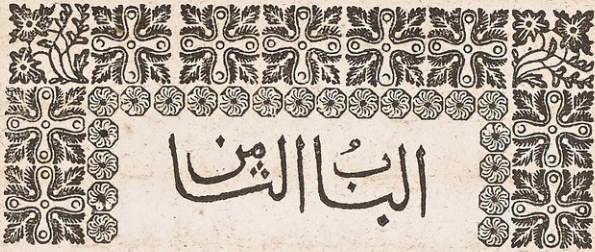 البابُ الثامن